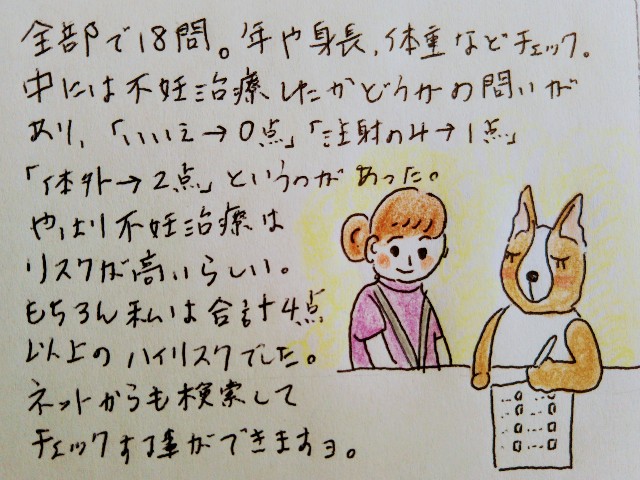 全部で18問。年や身長、体重などチェック。
中には不妊治療したかどうかの問いが
あり、「いいえ→0点」「注射のみ→1点」
「体外→2点」というのがあった。
やはり不妊治療は
リスクが高いらしい。
もちろん私は合計4点
以上のハイリスクでした。
ネットからも検索して
チェックする事ができますョ。